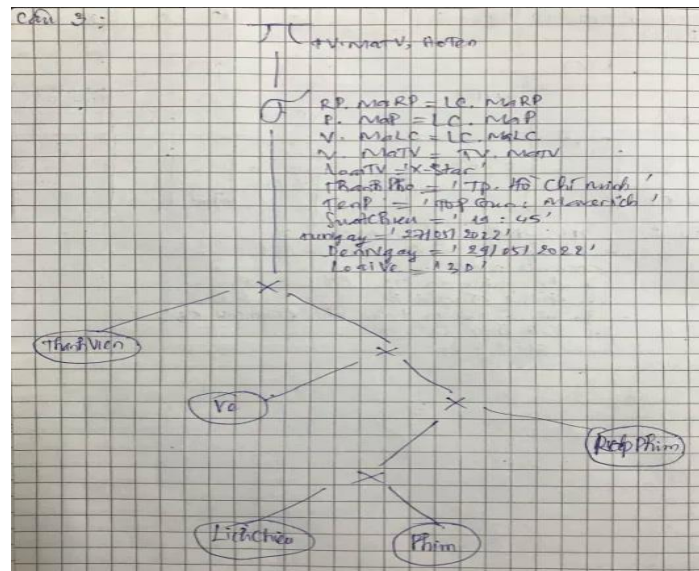 Câu 3 :
π TV.MaTV, HoTen
σ RP. MaRP = LC. MaRP
P. MaP = LC. MaP
V. MaLC = LC. MaLC
V. MaTV = TV. MaTV
LoaiTV = 'X-Star'
ThanhPho = 'Tp. Hồ Chí Minh'
TenP = 'Top Gun: Maverick'
SuatChieu = '19:45'
TuNgay = '27/05/2022'
DenNgay = '29/05/2022'
LoaiVe = '3D'
×
ThanhVien
×
Ve
×
RapPhim
×
LichChieu
Phim